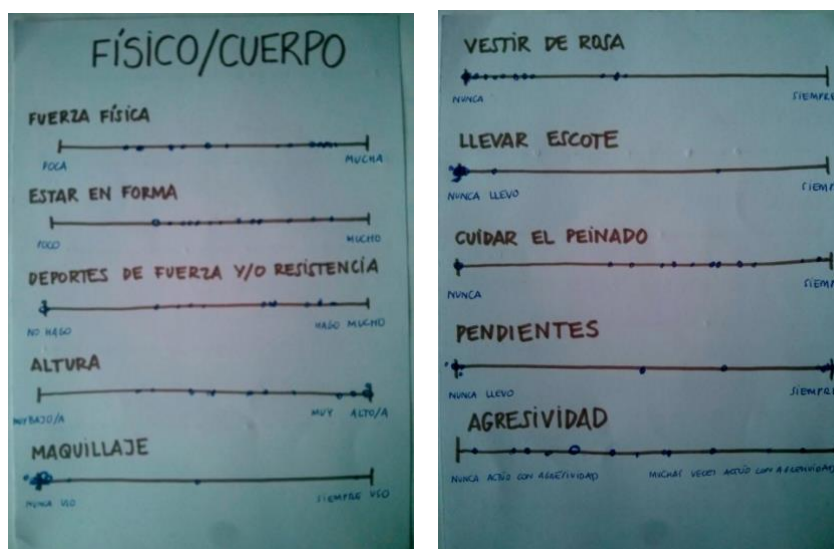 FÍSICO/CUERPO
FUERZA FÍSICA
POCA MUCHA
ESTAR EN FORMA
POCO MUCHO
DEPORTES DE FUERZA Y/O RESISTENCIA
NO HAGO HAGO MUCHO
ALTURA
MUY BAJO/A MUY ALTO/A
MAQUILLAJE
NUNCA USO SIEMPRE USO
VESTIR DE ROSA
NUNCA SIEMPRE
LLEVAR ESCOTE
NUNCA LLEVO SIEMP
CUIDAR EL PEINADO
NUNCA SIEM
PENDIENTES
NUNCA LLEVO SIEMPRE
AGRESIVIDAD
NUNCA ACTÚO CON AGRESIVIDAD MUCHAS VECES ACTÚO CON AGRESIVIDAD